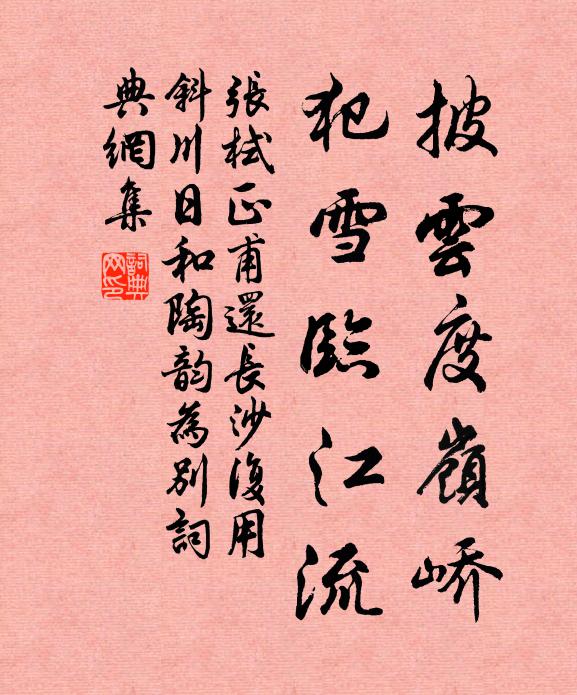 披雲度嶺嶠
犯雪臨江流
張栻正甫還長沙復用
斜川日和陶韵為別詞
典網集
詞典網印